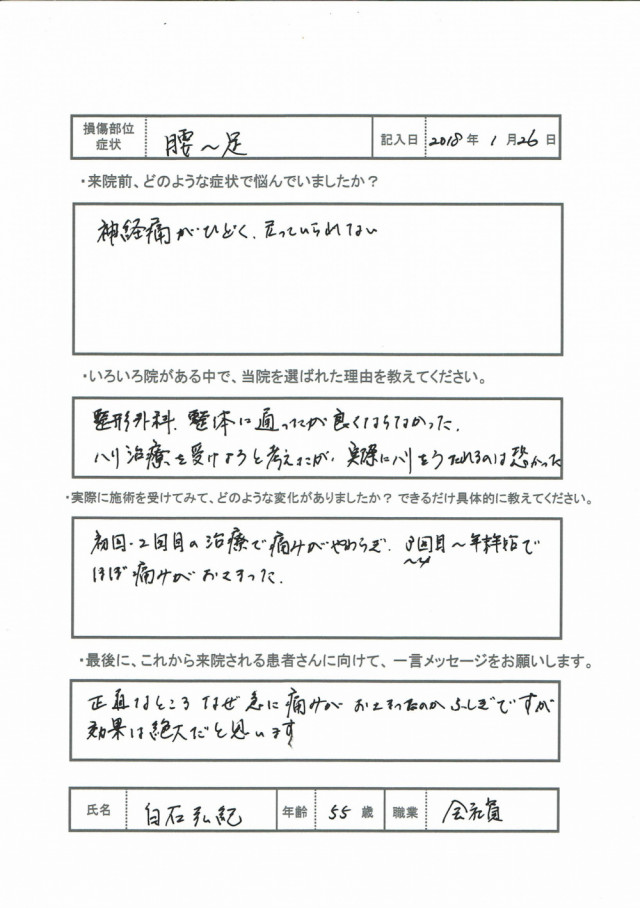 損傷部位
症状
腰～足
記入日 2018年 1月26日
・来院前、どのような症状で悩んでいましたか？
神経痛がひどく、立っていられない
・いろいろ院がある中で、当院を選ばれた理由を教えてください。
整形外科、整体に通ったが良くならなかった.
ハリ治療を受けようと考えたが、実際にハリをうたれるのは恐かった
・実際に施術を受けてみて、どのような変化がありましたか？ できるだけ具体的に教えてください。
初回・2回目の治療で痛みがやわらぎ. 3回目～年末年始で
ほぼ痛みがおさまった.
・最後に、これから来院される患者さんに向けて、一言メッセージをお願いします。
正直なところ なぜ急に痛みが おさまったのか ふしぎですが
効果は絶大だと思います
氏名 白石弘紀 年齢 55 歳 職業 会社員